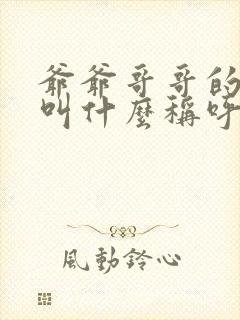 爺爺哥哥的
叫什麼稱呼
風動鈴心